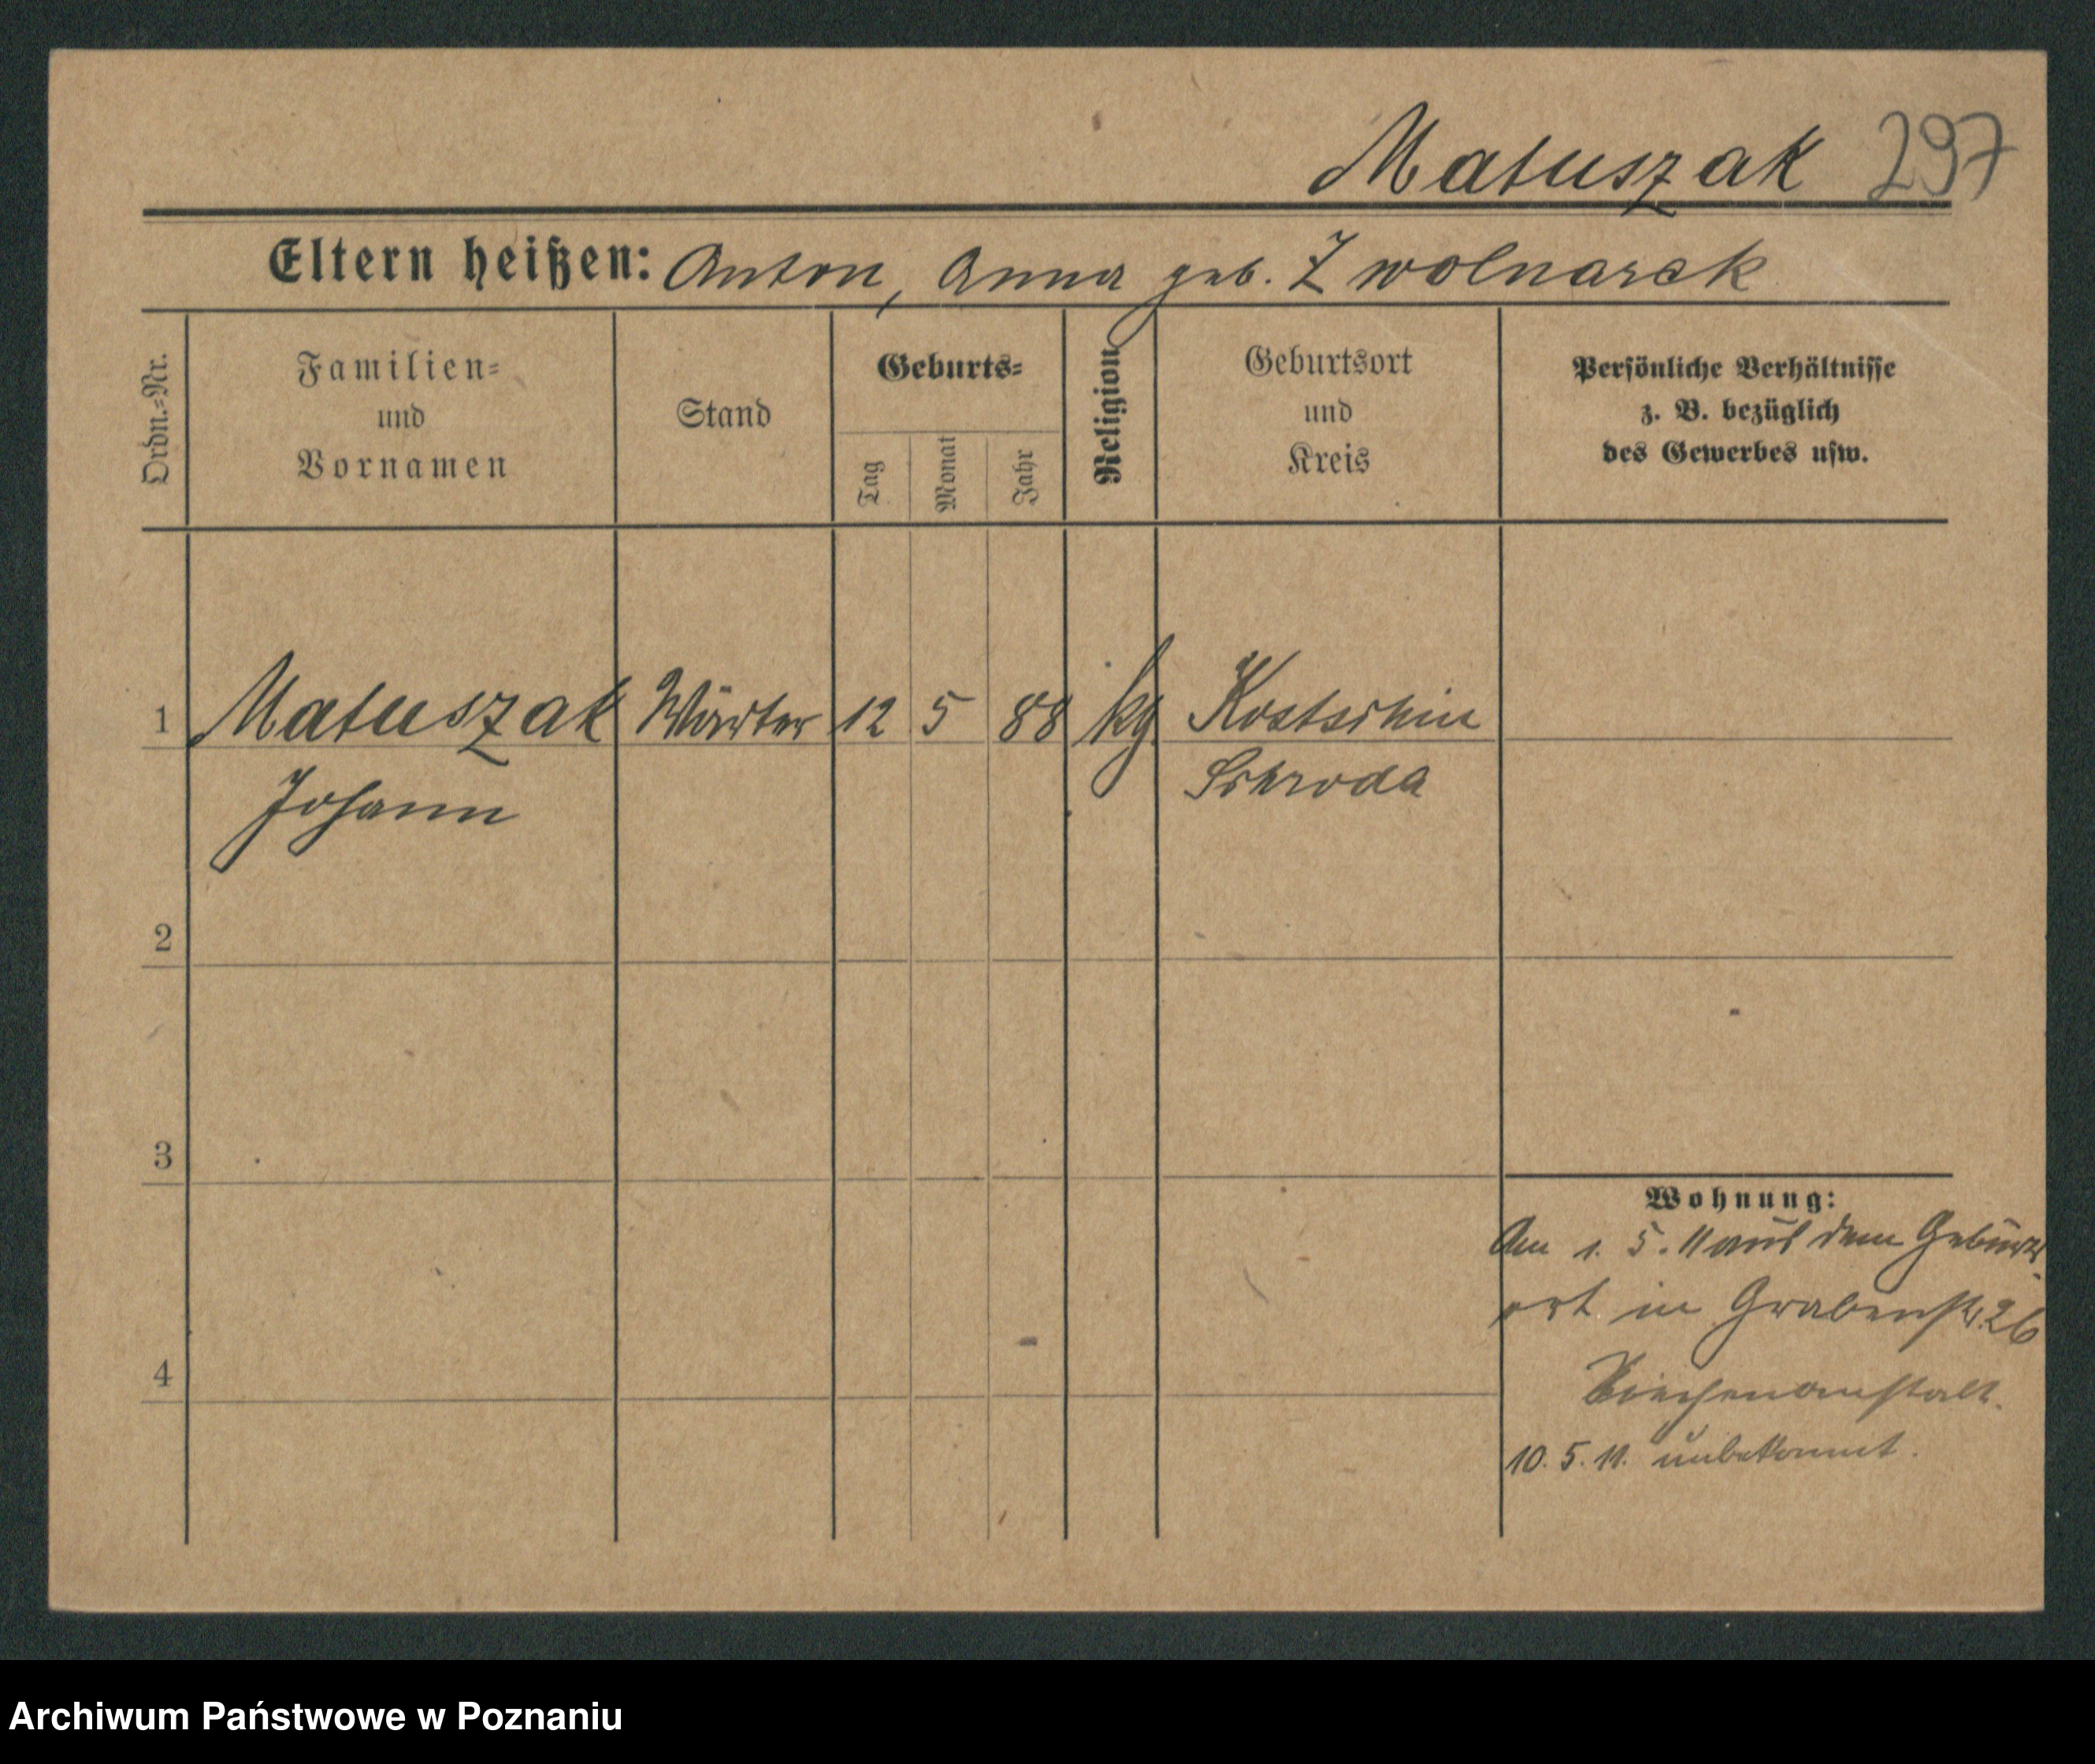 Matuszak 297
Eltern heißen: Anton, Anna geb. Zwolnarek
Ordn.-Nr.
Familien-
und
Vornamen
Stand
Geburts-
Tag
Monat
Jahr
Religion
Geburtsort
und
Kreis
Persönliche Verhältnisse
z. B. bezüglich
des Gewerbes usw.
1 Matuszak Wärter 12 5 88 kg. Kostschin
Johann Schroda
2
3
Wohnung:
Am 1. 5. 11 aus dem Geburts-
ort in Grabenstr. 26
4
Siechenanstalt.
10. 5. 11. unbekannt.
Archiwum Państwowe w Poznaniu